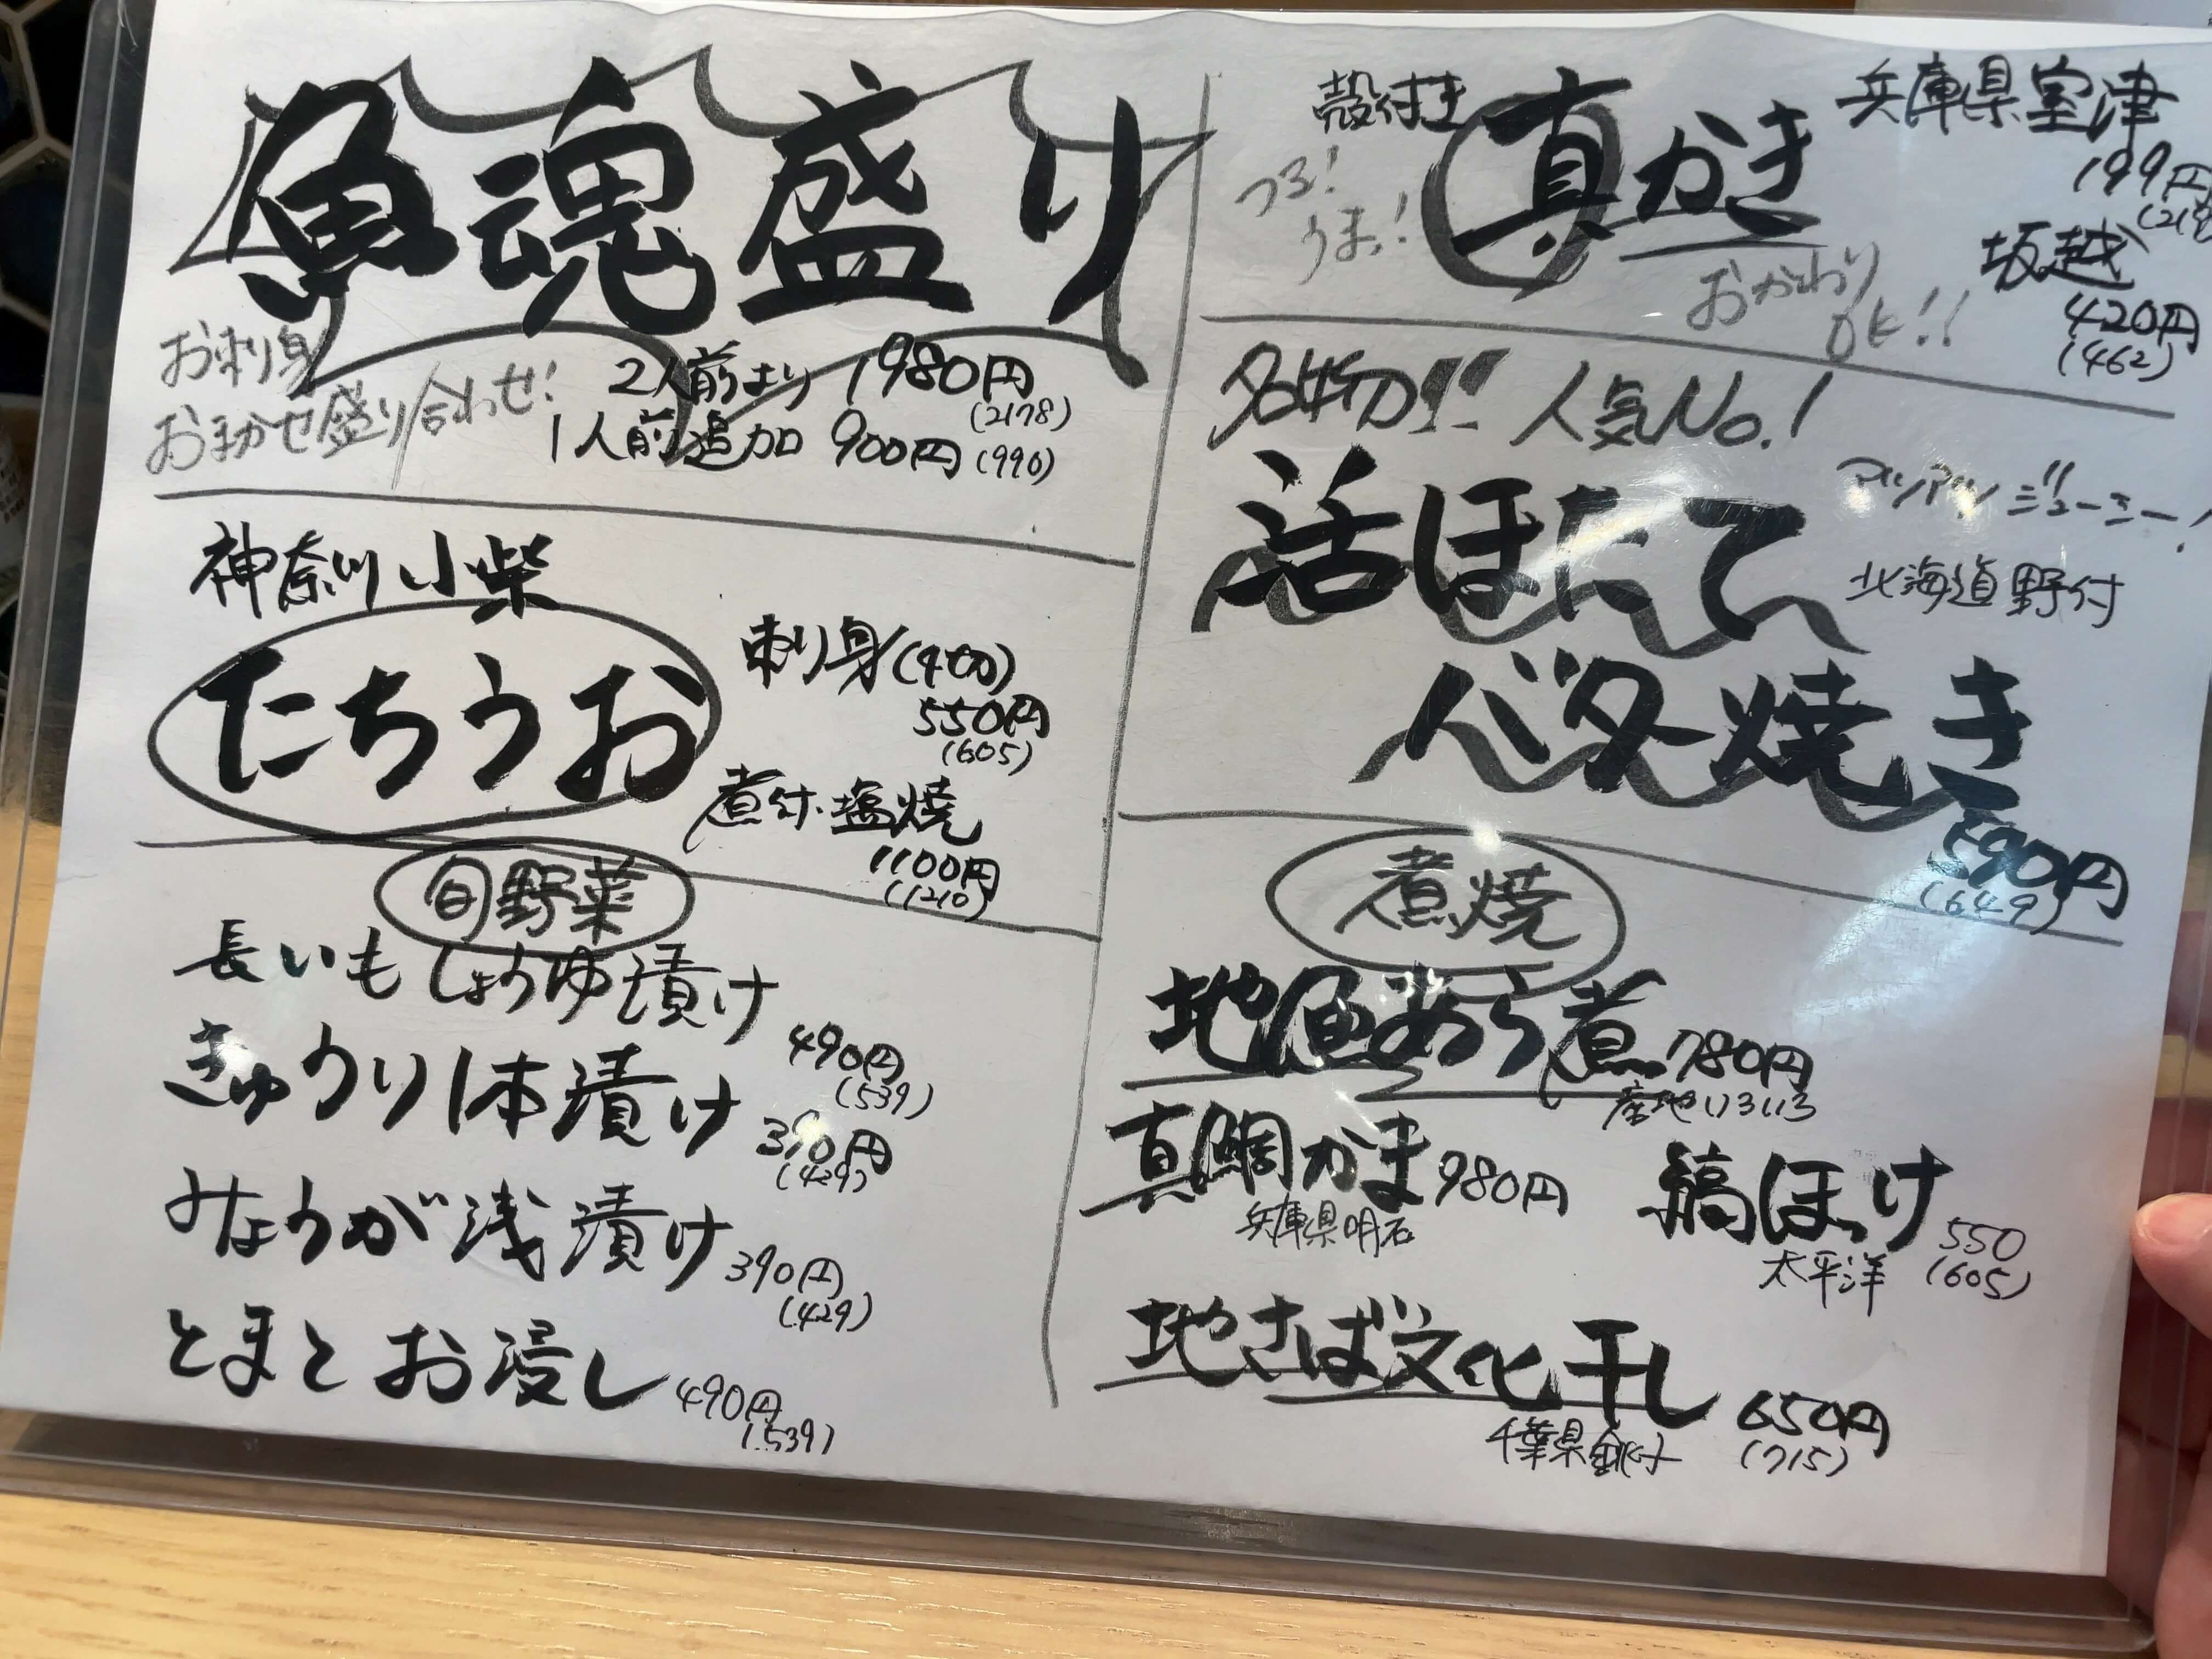 魚魂盛り
お刺身
おまかせ盛り合わせ!
2人前より 1980円
(2178)
1人前追加 900円(990)
神奈川小柴
たちうお
刺身(4切)
550円
(605)
煮付・塩焼
1100円
(1210)
旬野菜
長いもしょうゆ漬け
490円
(539)
きゅうり1本漬け
390円
(429)
みょうが浅漬け
390円
(429)
とまとお浸し
490円
(539)
殻付き
真かき
つる!
うま!
おかわり
OK!!
兵庫県室津
199円
坂越
420円
(462)
名物!! 人気No.1
活ほたて
バター焼き
アツアツジューシー!
北海道野付
590円
(649)
煮焼
地魚あら煮 780円
産地いろいろ
真鯛かま 980円
兵庫県明石
縞ほっけ 550
太平洋 (605)
地さば文化干し
650円
(715)
千葉県